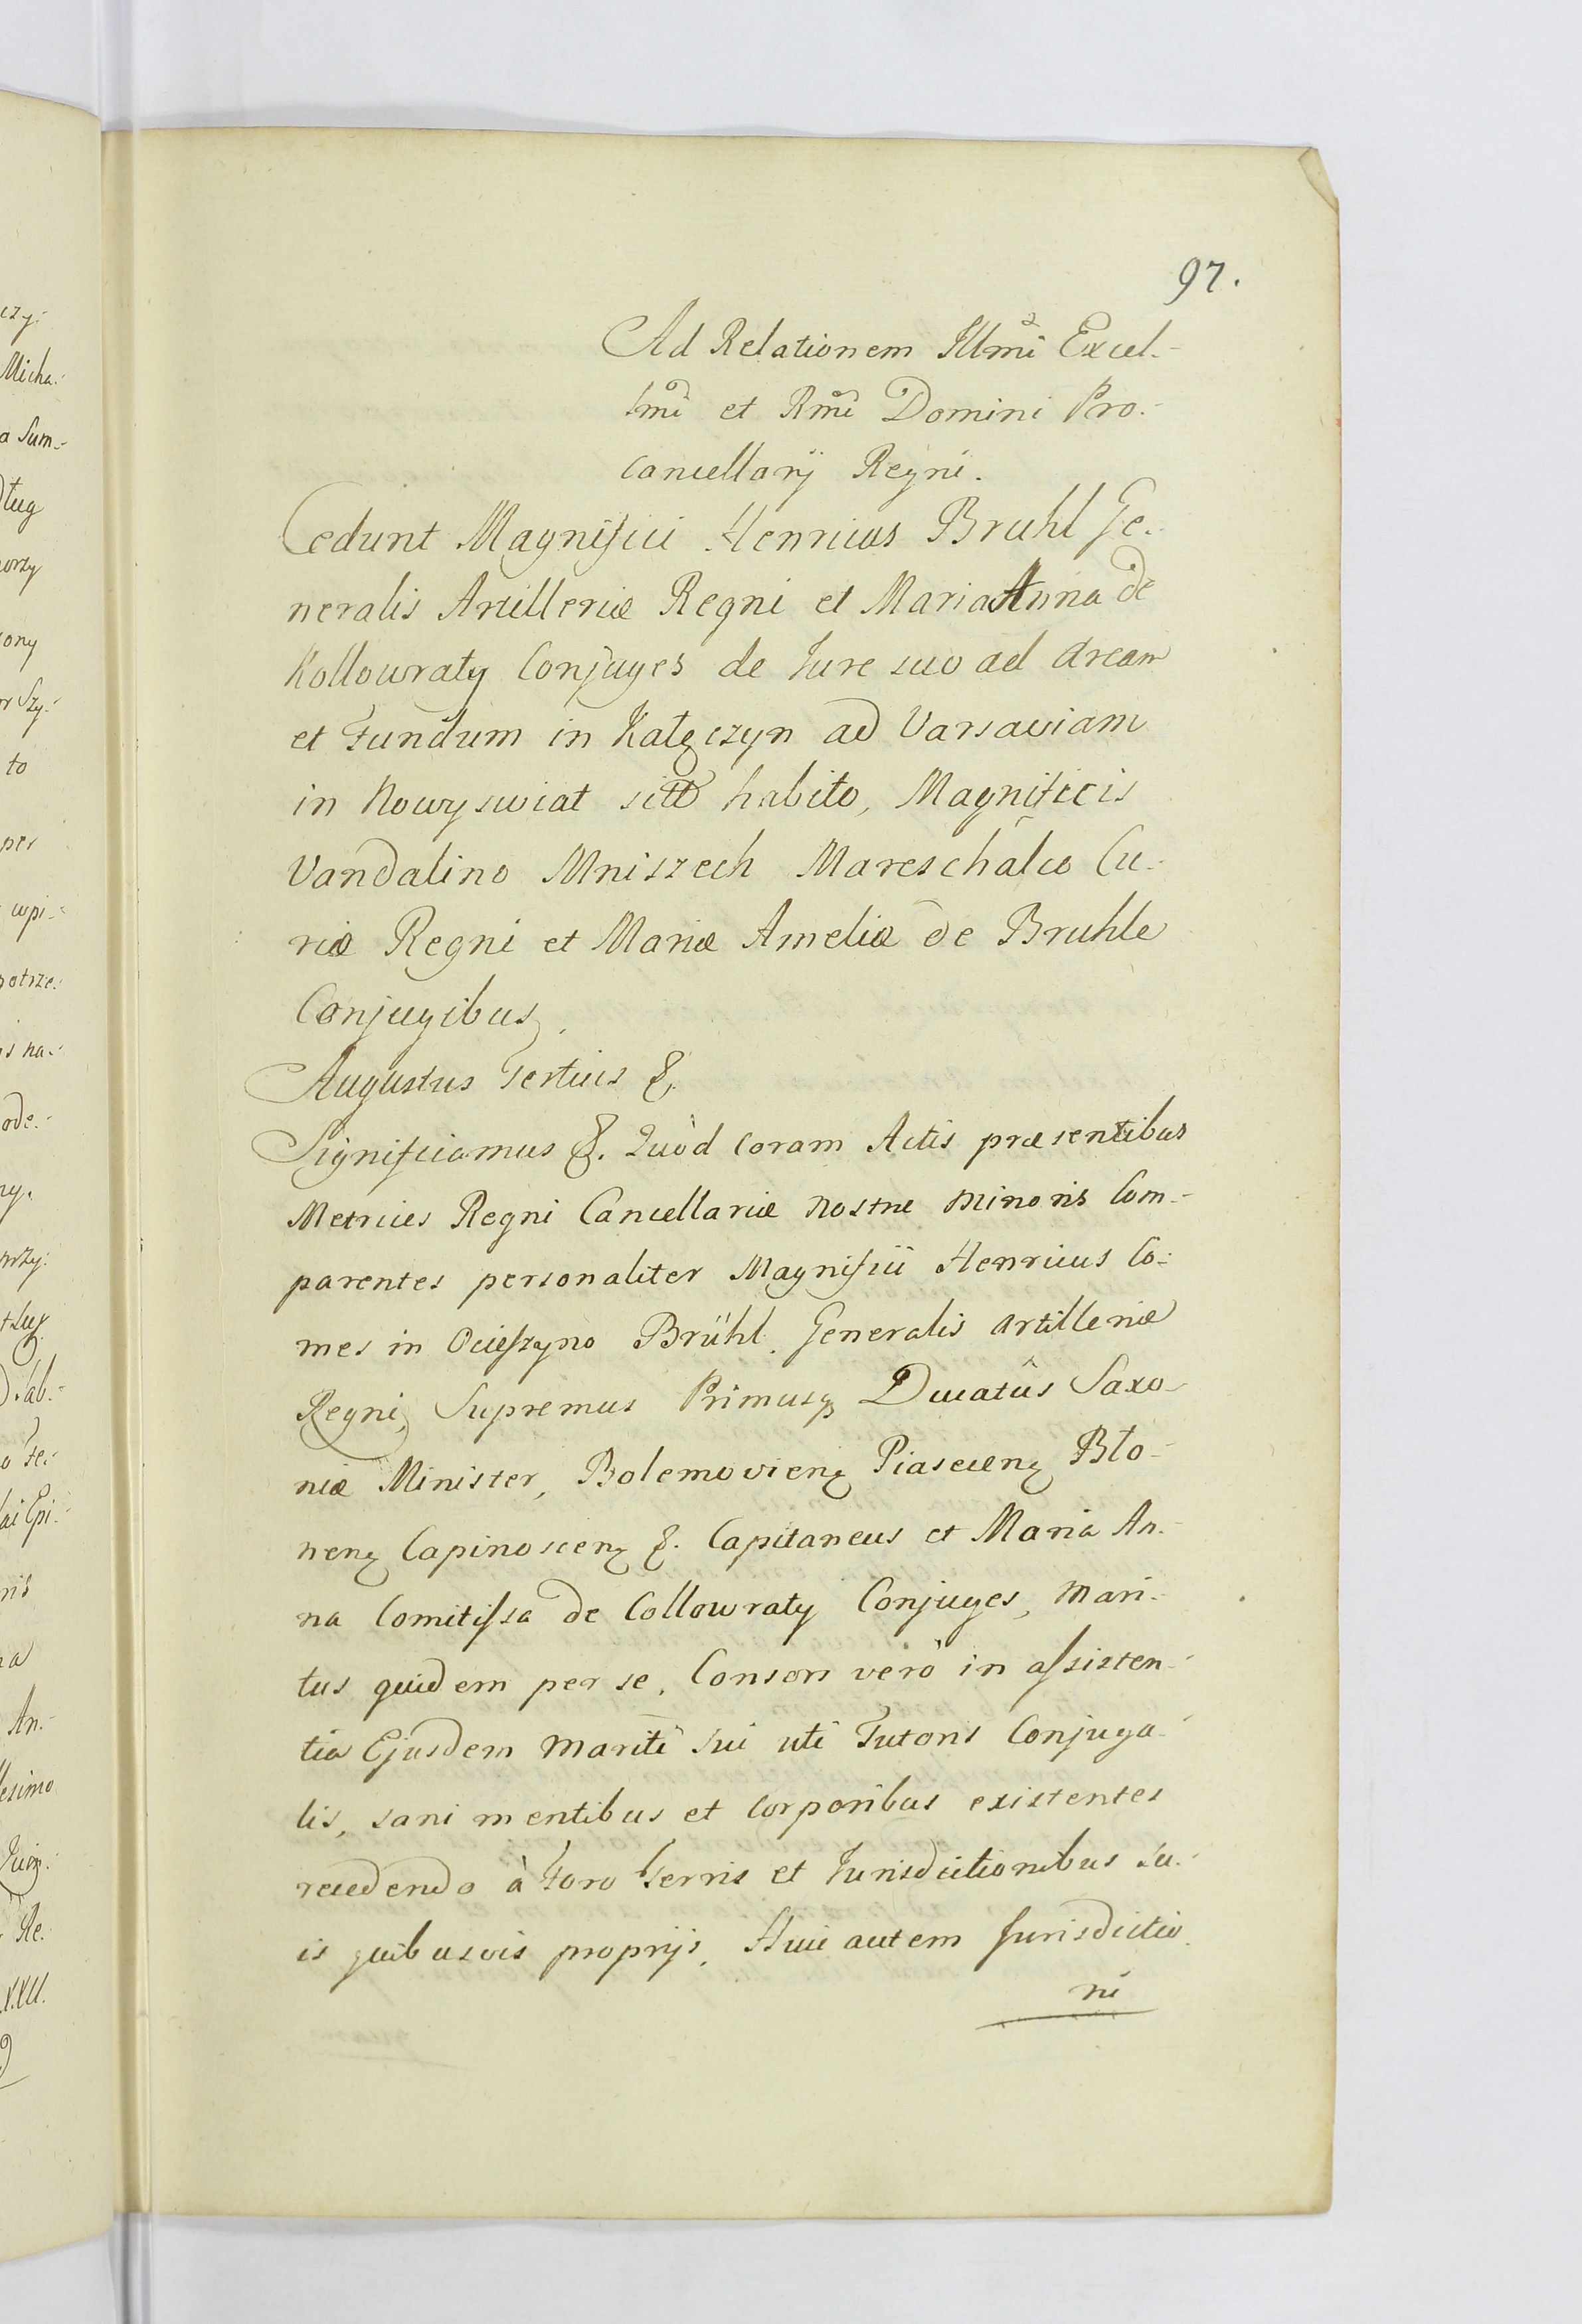 97.
Ad Relationem Illmi Excel-
lmi et Rmi Domini Pro-
cancellarij Regni.
Cedunt Magnifici Henricus Bruhl Ge-
neralis Artilleriæ Regni et Maria Anna de
Kollowraty Conjuges de Jure suo ad Aream
et Fundum in Kałęczyn ad Varsaviam
in Nowyswiat sitō habito, Magnificis
Vandalino Mniszech Mareschalco Cu-
riæ Regni et Mariæ Ameliæ de Bruhle
Conjugibus.
Augustus Tertius &.
Significamus &. Quòd coram Actis præsentibus
Metrices Regni Cancellariæ Nostræ Minoris Com-
parentes personaliter Magnifici Henricus Co-
mes in Ocieszyno Brühl. Generalis Artilleriæ
Regni, Supremus Primusq Ducatûs Saxo-
niæ Minister, Bolemovienȝ Piasecenȝ Bło-
nenȝ Capinoscenȝ &. Capitaneus et Maria An-
na Comitissa de Collowraty Conjuges, Mari-
tus quidem per se, Consors verò in assisten-
tia Ejusdem Mariti sui uti Tutoris Conjuga-
lis, sani mentibus et corporibus existentes
recedendo à Foro Terris et Jurisdictionibus su-
is quibusvis proprijs, Huic autem Jurisdictio
ni
czy:
Micha-
a Sum-
ług
ony
to
per
wpi-
potrze-
is na-
ode-
ny.
Łab-
o Fe-
ai Epi-
ris
na
An-
lesimo
Re.